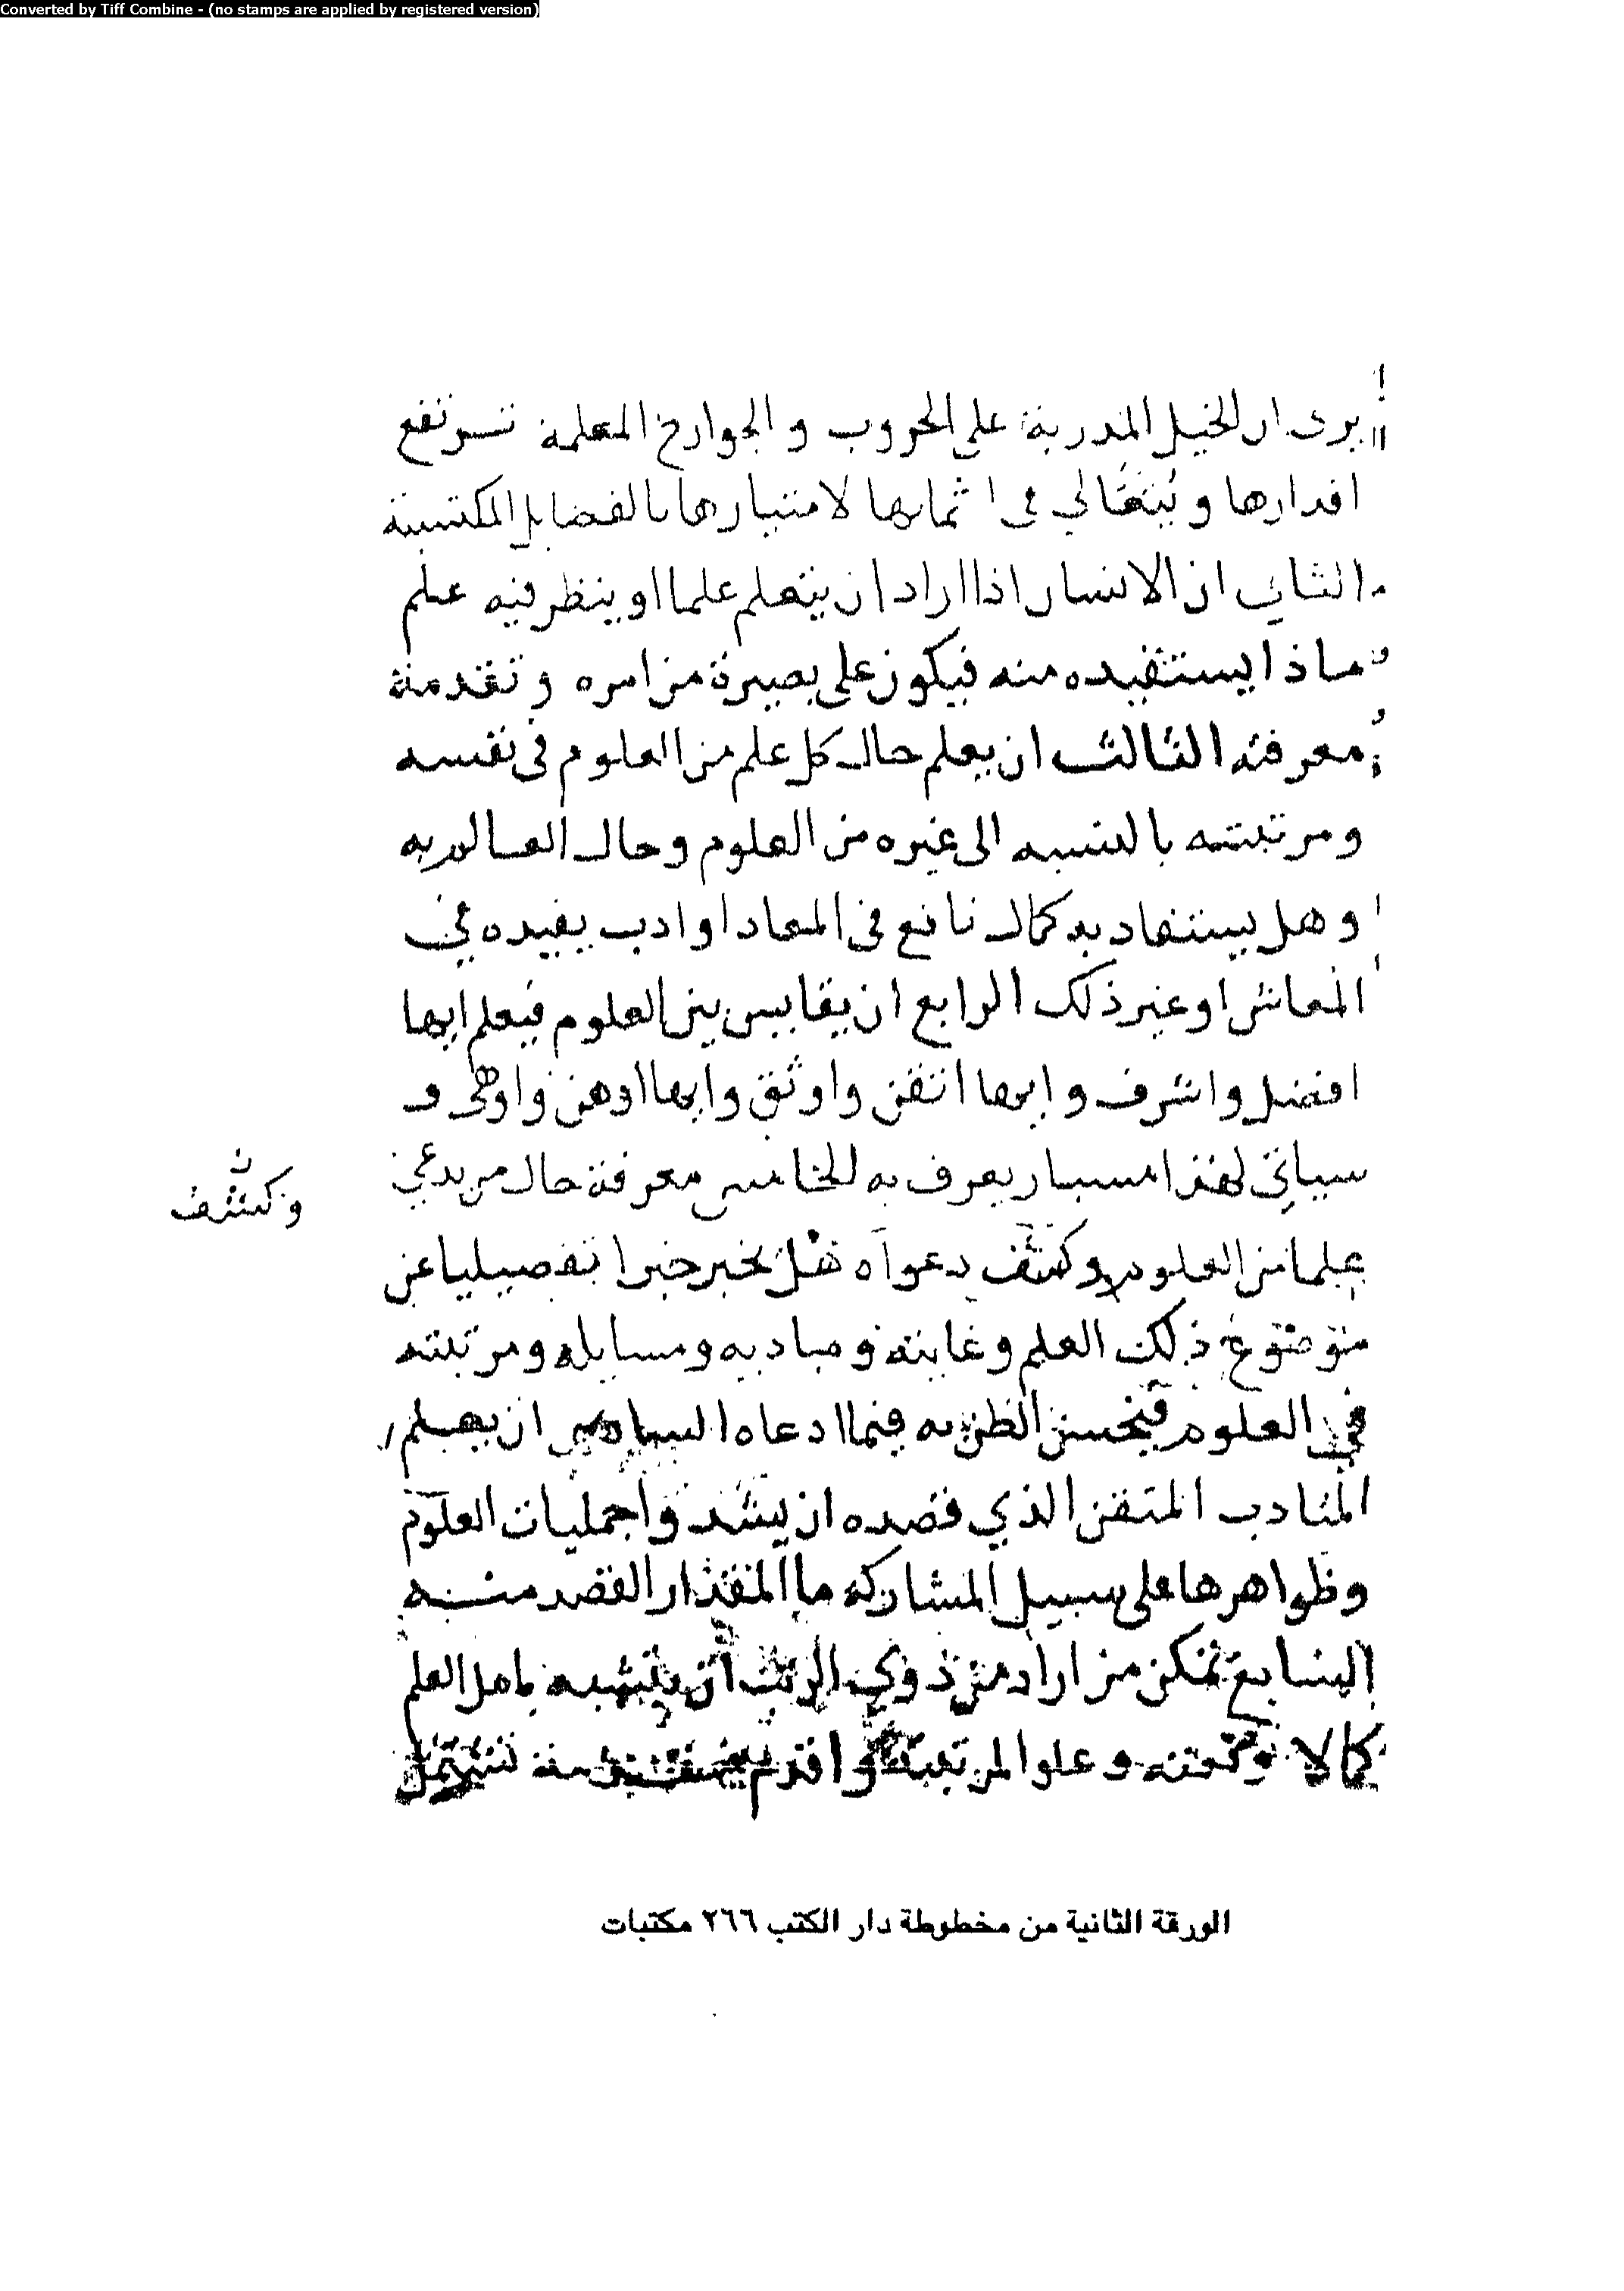 Converted by Tiff Combine - (no stamps are applied by registered version)
يرى ان الخيل المدربة على الحروب و الجوارح المعلمة ترتفع
اقدارها و يتغالي فى اثمانها لامتيازها بالفضايل المكتسبة
الثاني ان الانسان اذا اراد ان يتعلم علما او ينظر فيه علم
ماذا يستفيده منه فيكون على بصيرة من امره و تقدمة
معرفته الثالث ان يعلم حال كل علم من العلوم فى نفسه
و مرتبته بالنسبه الى غيره من العلوم و حال العالم به
و هل يستفاد به كمال نافع فى المعاد او ادب يفيده في
المعاش او غير ذلك الرابع ان يقايس بين العلوم فيعلم ايها
افضل و اشرف و ايها اتقن و اوثق و ايها اوهن و اوهى و
سياتى لهذا مسبار يعرف به الخامس معرفة حال من يدعي
علما من العلوم و كشف دعواه هل يخبر خبرا تفصيليا عن
موضوع ذلك العلم و غايته و مباديه و مسايله و مرتبته
في العلوم فيحسن الظن به فيما ادعاه السادس ان يعلم
المتادب المتفنن الذي قصده ان يشدو اجمليات العلوم
و ظواهرها على سبيل المشاركة ما المقدار القصد منه
السابع تمكن من اراد من ذوي الرتب ان يتشبه باهل العلم
كمالا و علو المرتبة
و كشف
الورقة الثانية من مخطوطة دار الكتب ٢٦٦ مكتبات